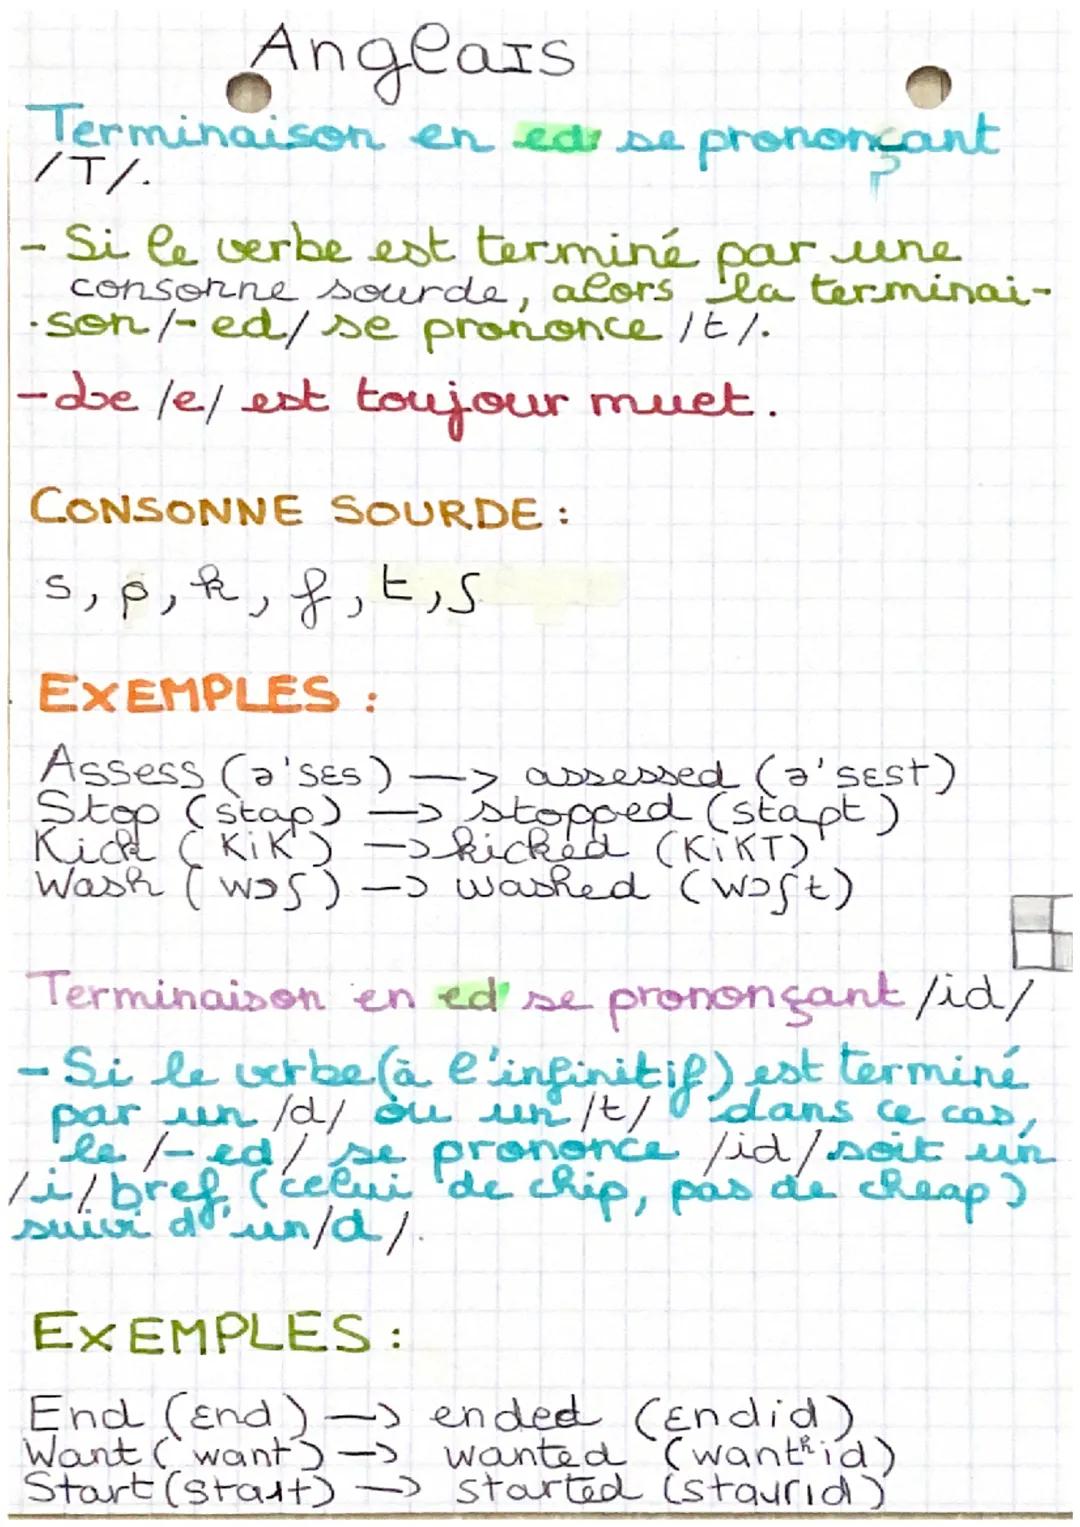 Anglais
Terminaison en ed se prononçant
/T/.
- Si le verbe est terminé par une
consonne sourde, alors la terminai-
-son /-ed/ se prononce /t/.
- Le /e/ est toujour muet.
CONSONNE SOURDE :
s, p, k, f, t, ʃ
EXEMPLES :
Assess (ə'sɛs) —> assessed (ə'sɛst)
Stop (stap) —> stopped (stapt)
Kick (KiK) —> kicked (KiKT)
Wash (wɔʃ) —> washed (wɔʃt)
Terminaison en ed se prononçant /id/
- Si le verbe (à l'infinitif) est terminé
par un /d/ ou un /t/ dans ce cas,
le /-ed/ se prononce /id/ soit un
/i/ bref (celui de chip, pas de cheap)
suivi d'un /d/.
EXEMPLES :
End (ɛnd) —> ended (ɛndid)
Want (want) —> wanted (wantʰid)
Start (start) —> started